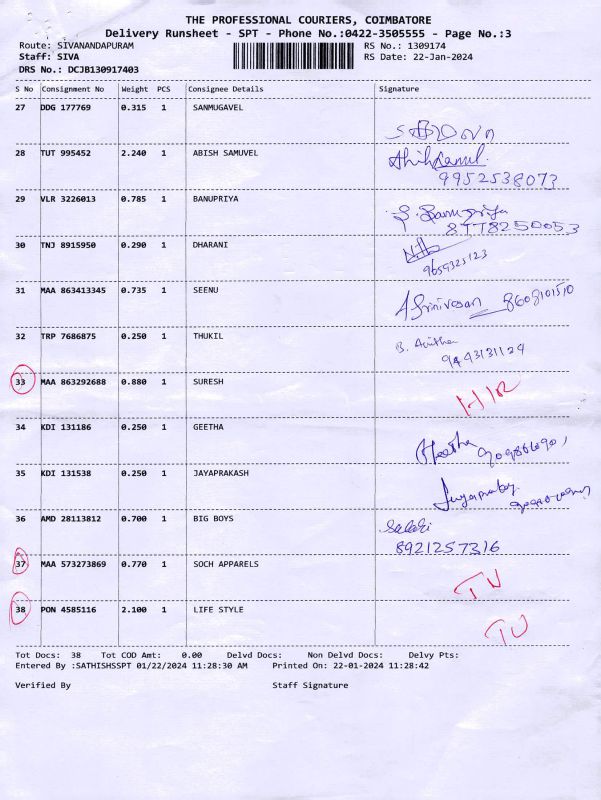 THE PROFESSIONAL COURIERS, COIMBATORE
Delivery Runsheet - SPT - Phone No.:0422-3505555 - Page No.:3
Route: SIVANANDAPURAM RS No.: 1309174
Staff: SIVA RS Date: 22-Jan-2024
DRS No.: DCJB130917403
S No Consignment No Weight PCS Consignee Details Signature
27 DDG 177769 0.315 1 SANMUGAVEL
28 TUT 995452 2.240 1 ABISH SAMUVEL
9952538073
29 VLR 3226013 0.785 1 BANUPRIYA
8778250053
30 TNJ 8915950 0.290 1 DHARANI
9659325123
31 MAA 863413345 0.735 1 SEENU
A Srinivasan 8608101510
32 TRP 7686875 0.250 1 THUKIL
9443131124
33 MAA 863292688 0.880 1 SURESH
34 KDI 131186 0.250 1 GEETHA
Geetha
35 KDI 131538 0.250 1 JAYAPRAKASH
36 AMD 28113812 0.700 1 BIG BOYS
8921257316
37 MAA 573273869 0.770 1 SOCH APPARELS
38 PON 4585116 2.100 1 LIFE STYLE
Tot Docs: 38 Tot COD Amt: 0.00 Delvd Docs: Non Delvd Docs: Delvy Pts:
Entered By :SATHISHSSPT 01/22/2024 11:28:30 AM Printed On: 22-01-2024 11:28:42
Verified By Staff Signature